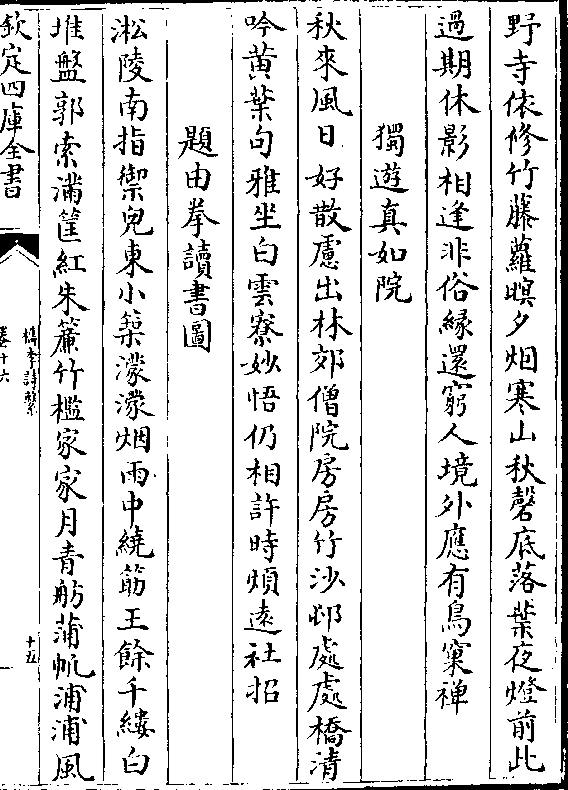 野寺依修竹藤蘿暝夕烟寒山秋磬底落葉夜燈前此
過期休影相逢非俗緣還窮人境外應有鳥窠禅
獨遊真如院
秋來風日好散慮出林郊僧院房房竹沙邨處處橋清
吟黄葉句雅坐白雲寮妙悟仍相許時煩遠社招
題由拳讀書圖
淞陵南指禦兒東小築濛濛烟雨中繞筯王餘千縷白
堆盤郭索滿筐紅朱簾竹檻家家月青舫蒲帆浦浦風
欽定四庫全書
檇李詩繫
卷十六
十五